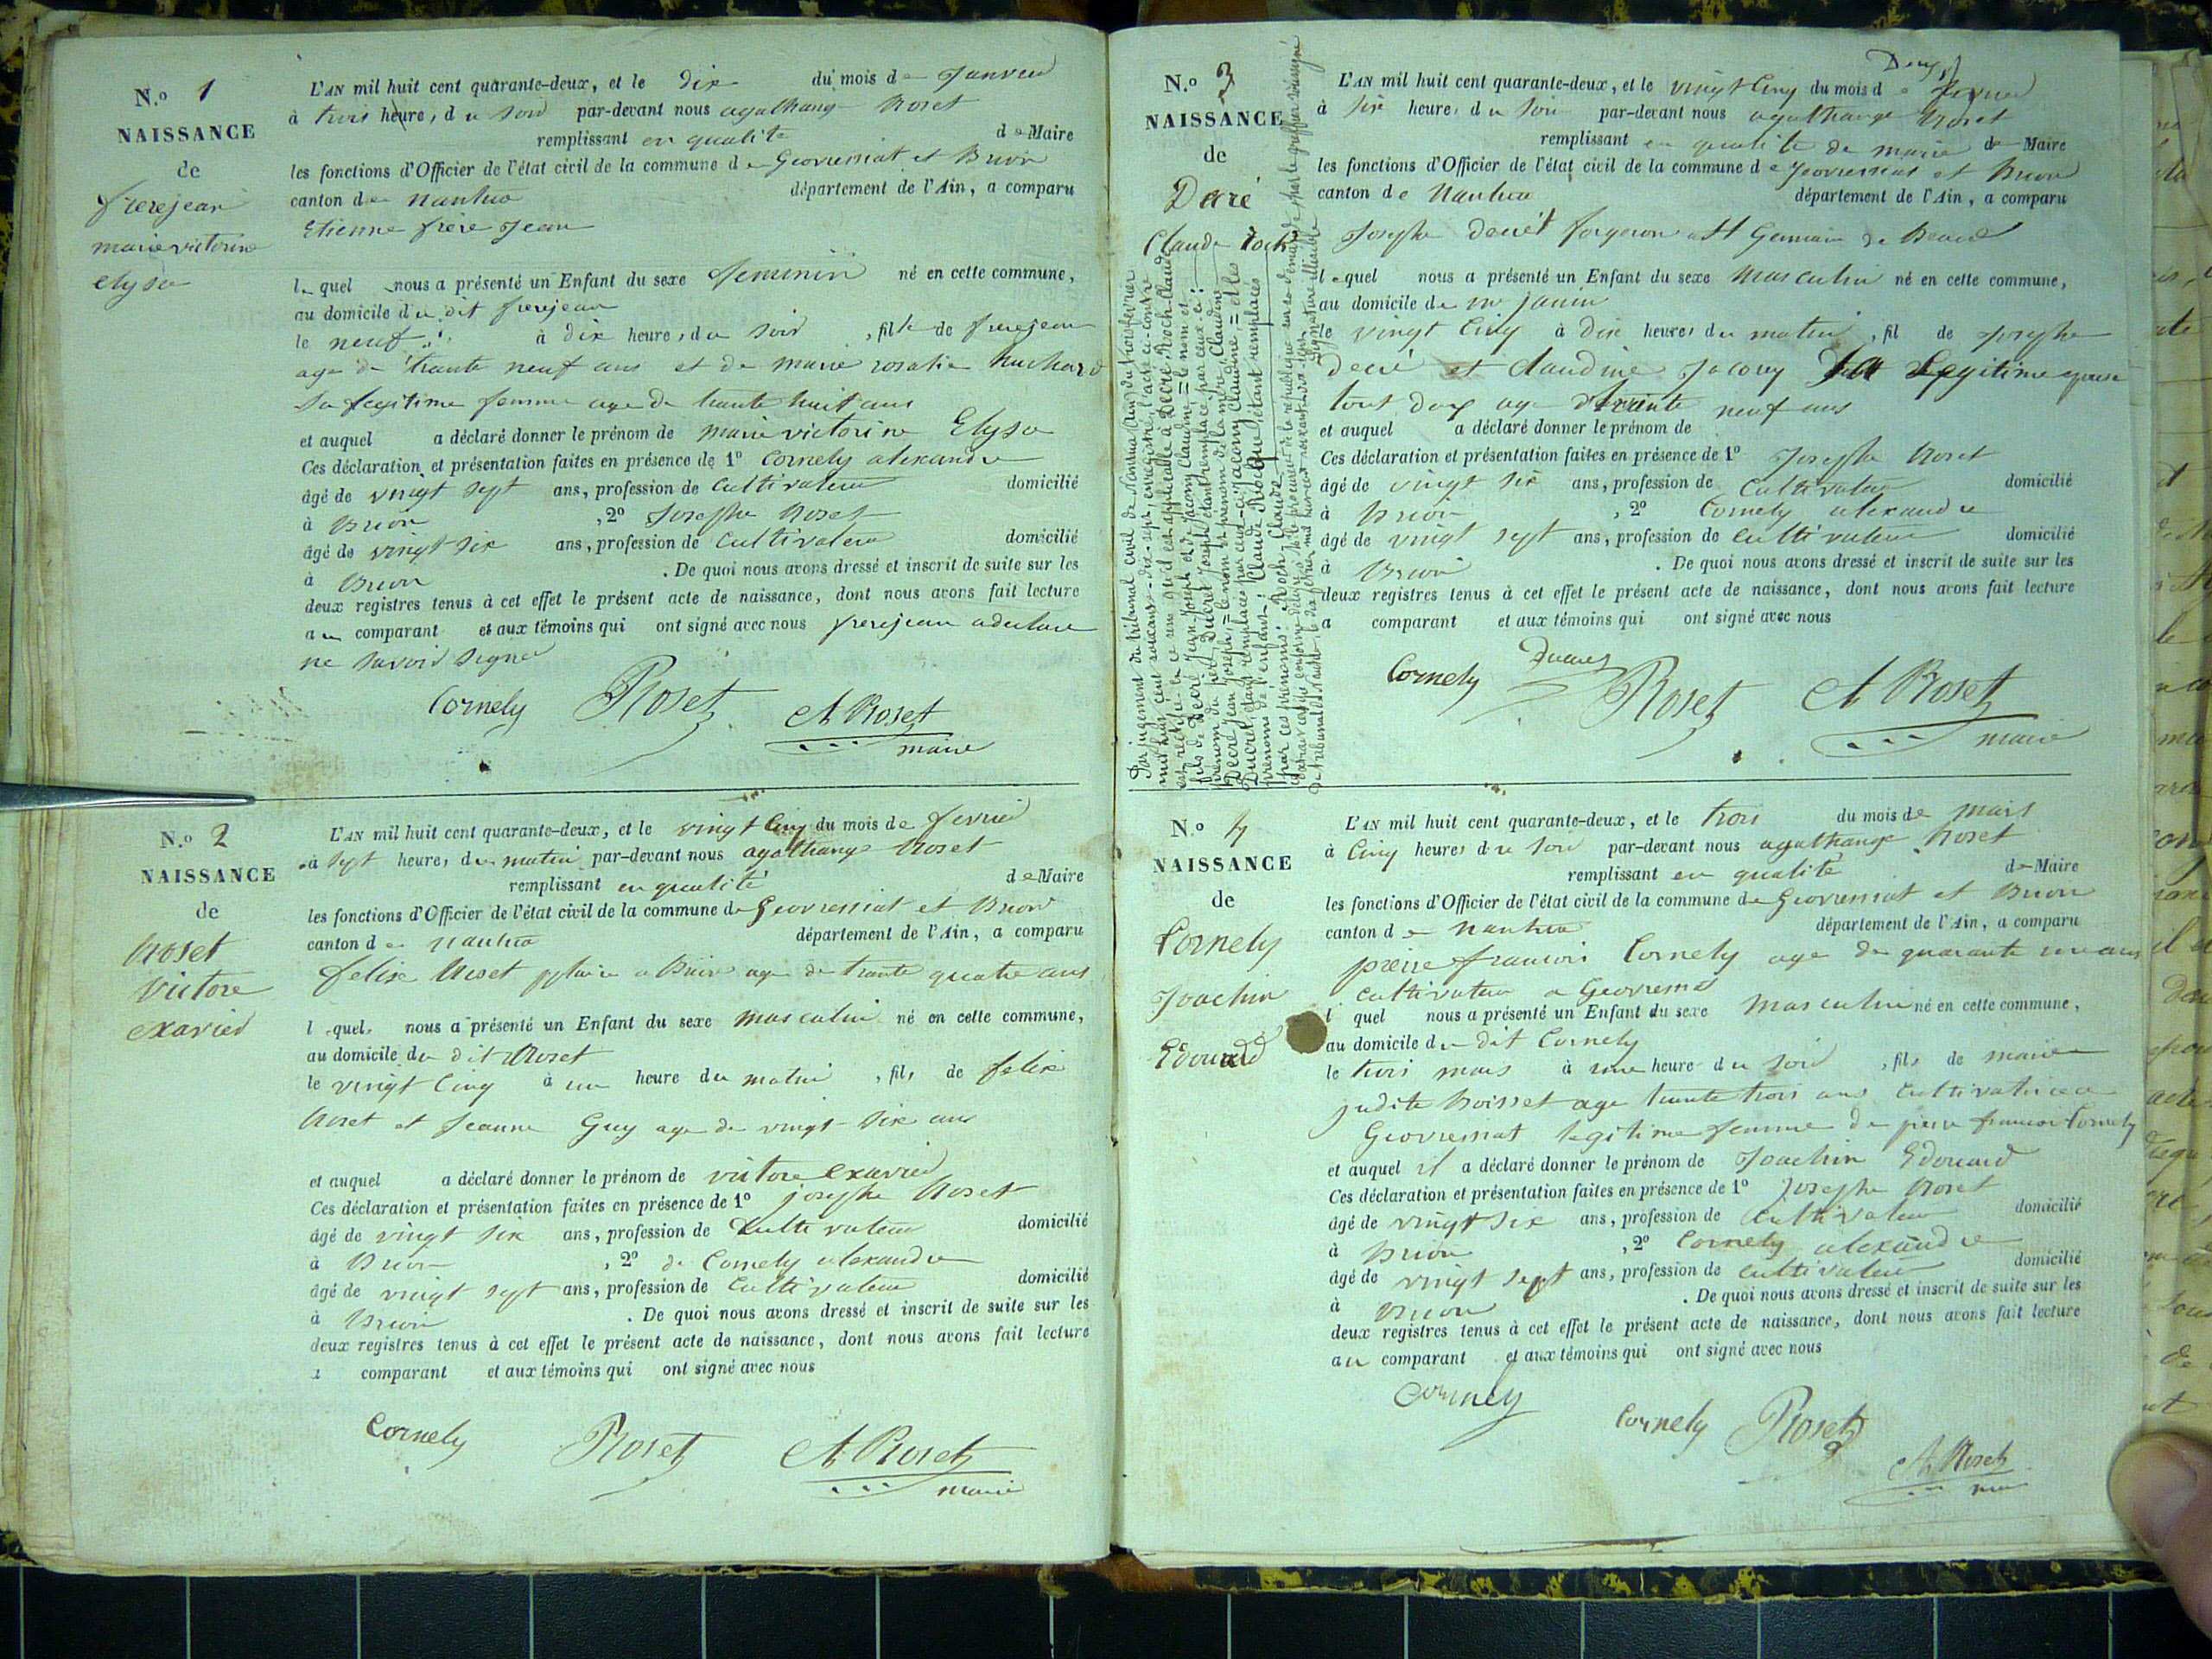 N.o 1
NAISSANCE
de
frerejean
marie victorine
elysa
L'AN mil huit cent quarante-deux, et le dix du mois de Janvier
à trois heure, du soir par-devant nous agathange Roset
remplissant en qualité de Maire
les fonctions d'Officier de l'état civil de la commune de Geovressiat et Brion
canton de nantua département de l'Ain, a comparu
Etienne frere Jean
lequel nous a présenté un Enfant du sexe feminin né en cette commune,
au domicile du dit frerejean
le neuf à dix heure, du soir, fille de frerejean
age de trante neuf ans et de marie rosalie huchard
sa legitime femme age de trante huit ans
et auquel a déclaré donner le prénom de marie victorine Elysa
Ces déclaration et présentation faites en présence de 1º Cornely alexandre
âgé de vingt sept ans, profession de Cultivateur domicilié
à Brion, 2º Josephe Roset
âgé de vingt six ans, profession de Cultivateur domicilié
à Brion. De quoi nous avons dressé et inscrit de suite sur les
deux registres tenus à cet effet le présent acte de naissance, dont nous avons fait lecture
au comparant et aux témoins qui ont signé avec nous frerejean a declare
ne savoir signer
Cornely Roset A Roset
maire
N.o 2
NAISSANCE
de
Roset
Victore
exavier
L'AN mil huit cent quarante-deux, et le vingt cinq du mois de fevrier
à sept heure, du matin par-devant nous agathange Roset
remplissant en qualité de Maire
les fonctions d'Officier de l'état civil de la commune de Geovressiat et Brion
canton de nantua département de l'Ain, a comparu
felix Roset a Brion age de trante quatre ans
lequel nous a présenté un Enfant du sexe masculin né en cette commune,
au domicile du dit Roset
le vingt cinq à un heure du matin, fils de felix
Roset et Jeanne Guy age de vingt six ans
et auquel a déclaré donner le prénom de victore exavier
Ces déclaration et présentation faites en présence de 1º josephe Roset
âgé de vingt six ans, profession de Cultivateur domicilié
à Brion, 2º de Cornely alexandre
âgé de vingt sept ans, profession de Cultivateur domicilié
à Brion. De quoi nous avons dressé et inscrit de suite sur les
deux registres tenus à cet effet le présent acte de naissance, dont nous avons fait lecture
a comparant et aux témoins qui ont signé avec nous
Cornely Roset A Roset
maire
N.o 3
NAISSANCE
de
Decré
Claude Roch
Par jugement du tribunal civil de Nantua du trois fevrier
mil huit cent soixante-dix-sept, enregistré, l'acte ci-contre
est rectifié en ce sens qu'il est applicable à Decré Roch Claude
fils de Decré Jean Joseph et de Jacomy Claudine = le nom et
prénom du père, Ducret Joseph étant remplacé par ceux-ci:
Decré Jean Joseph, = le nom et prénom de la mère, Claudine
Ducret, étant remplacés par ceux-ci: Jacomy Claudine, = et les
prénoms de l'enfant: Claude Rocque, étant remplacés
par ces prénoms: Roch, Claude.
L'AN mil huit cent quarante-deux, et le vingt cinq du mois de fevrier
à six heure, du soir par-devant nous agathange Roset
remplissant en qualité de maire de Maire
les fonctions d'Officier de l'état civil de la commune de Geovressiat et Brion
canton de Nantua département de l'Ain, a comparu
Josephe decrét forgeron a St Germain de Beard
lequel nous a présenté un Enfant du sexe masculin né en cette commune,
au domicile de mr janin
le vingt cinq à dix heures du matin, fil de Josephe
decré et claudine Jacomy sa legitime epouse
tout deux age de trante neuf ans
et auquel a déclaré donner le prénom de
Ces déclaration et présentation faites en présence de 1º Josephe Roset
âgé de vingt six ans, profession de Cultivateur domicilié
à Brion, 2º Cornely alexandre
âgé de vingt sept ans, profession de cultivateur domicilié
à Brion. De quoi nous avons dressé et inscrit de suite sur les
deux registres tenus à cet effet le présent acte de naissance, dont nous avons fait lecture
a comparant et aux témoins qui ont signé avec nous
Cornely Roset A Roset
maire
N.o 4
NAISSANCE
de
Cornely
Joachin
Edouard
L'AN mil huit cent quarante-deux, et le trois du mois de mars
à cinq heures du soir par-devant nous agathange Roset
remplissant en qualité de Maire
les fonctions d'Officier de l'état civil de la commune de Geovressiat et Brion
canton de nantua département de l'Ain, a comparu
pierre francois Cornely age de quarante un ans
cultivateur a Geovressiat
l quel nous a présenté un Enfant du sexe masculin né en cette commune,
au domicile du dit Cornely
le trois mars à une heure du soir, fils de marie
judite Boisset age trante trois ans cultivatrice a
Geovressiat legitime femme de pierre francois Cornely
et auquel il a déclaré donner le prénom de Joachin Edouard
Ces déclaration et présentation faites en présence de 1º Josephe Roset
âgé de vingt six ans, profession de cultivateur domicilié
à Brion, 2º Cornely alexandre
âgé de vingt sept ans, profession de cultivateur domicilié
à Brion. De quoi nous avons dressé et inscrit de suite sur les
deux registres tenus à cet effet le présent acte de naissance, dont nous avons fait lecture
au comparant et aux témoins qui ont signé avec nous
Cornely
Cornely Roset
A Roset